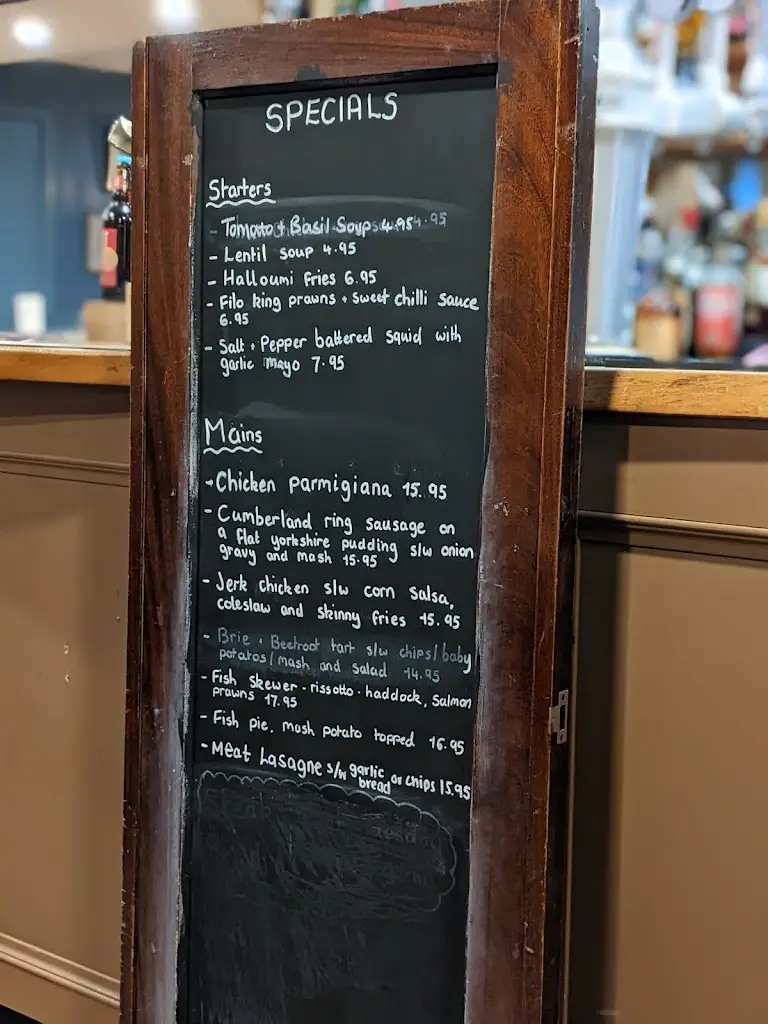 SPECIALS
Starters
- Tomato + Basil Soup 4.95
- Lentil soup 4.95
- Halloumi fries 6.95
- Filo king prawns + sweet chilli sauce
6.95
- Salt + Pepper battered squid with
garlic mayo 7.95
Mains
- Chicken parmigiana 15.95
- Cumberland ring sausage on
a flat yorkshire pudding s/w onion
gravy and mash 15.95
- Jerk chicken s/w corn salsa,
coleslaw and skinny fries 15.95
- Brie + Beetroot tart s/w chips/baby
potatos/mash and salad 14.95
- Fish skewer - rissotto - haddock, salmon
prawns 17.95
- Fish pie, mash potato topped 16.95
- Meat Lasagne s/w garlic bread or chips 15.95